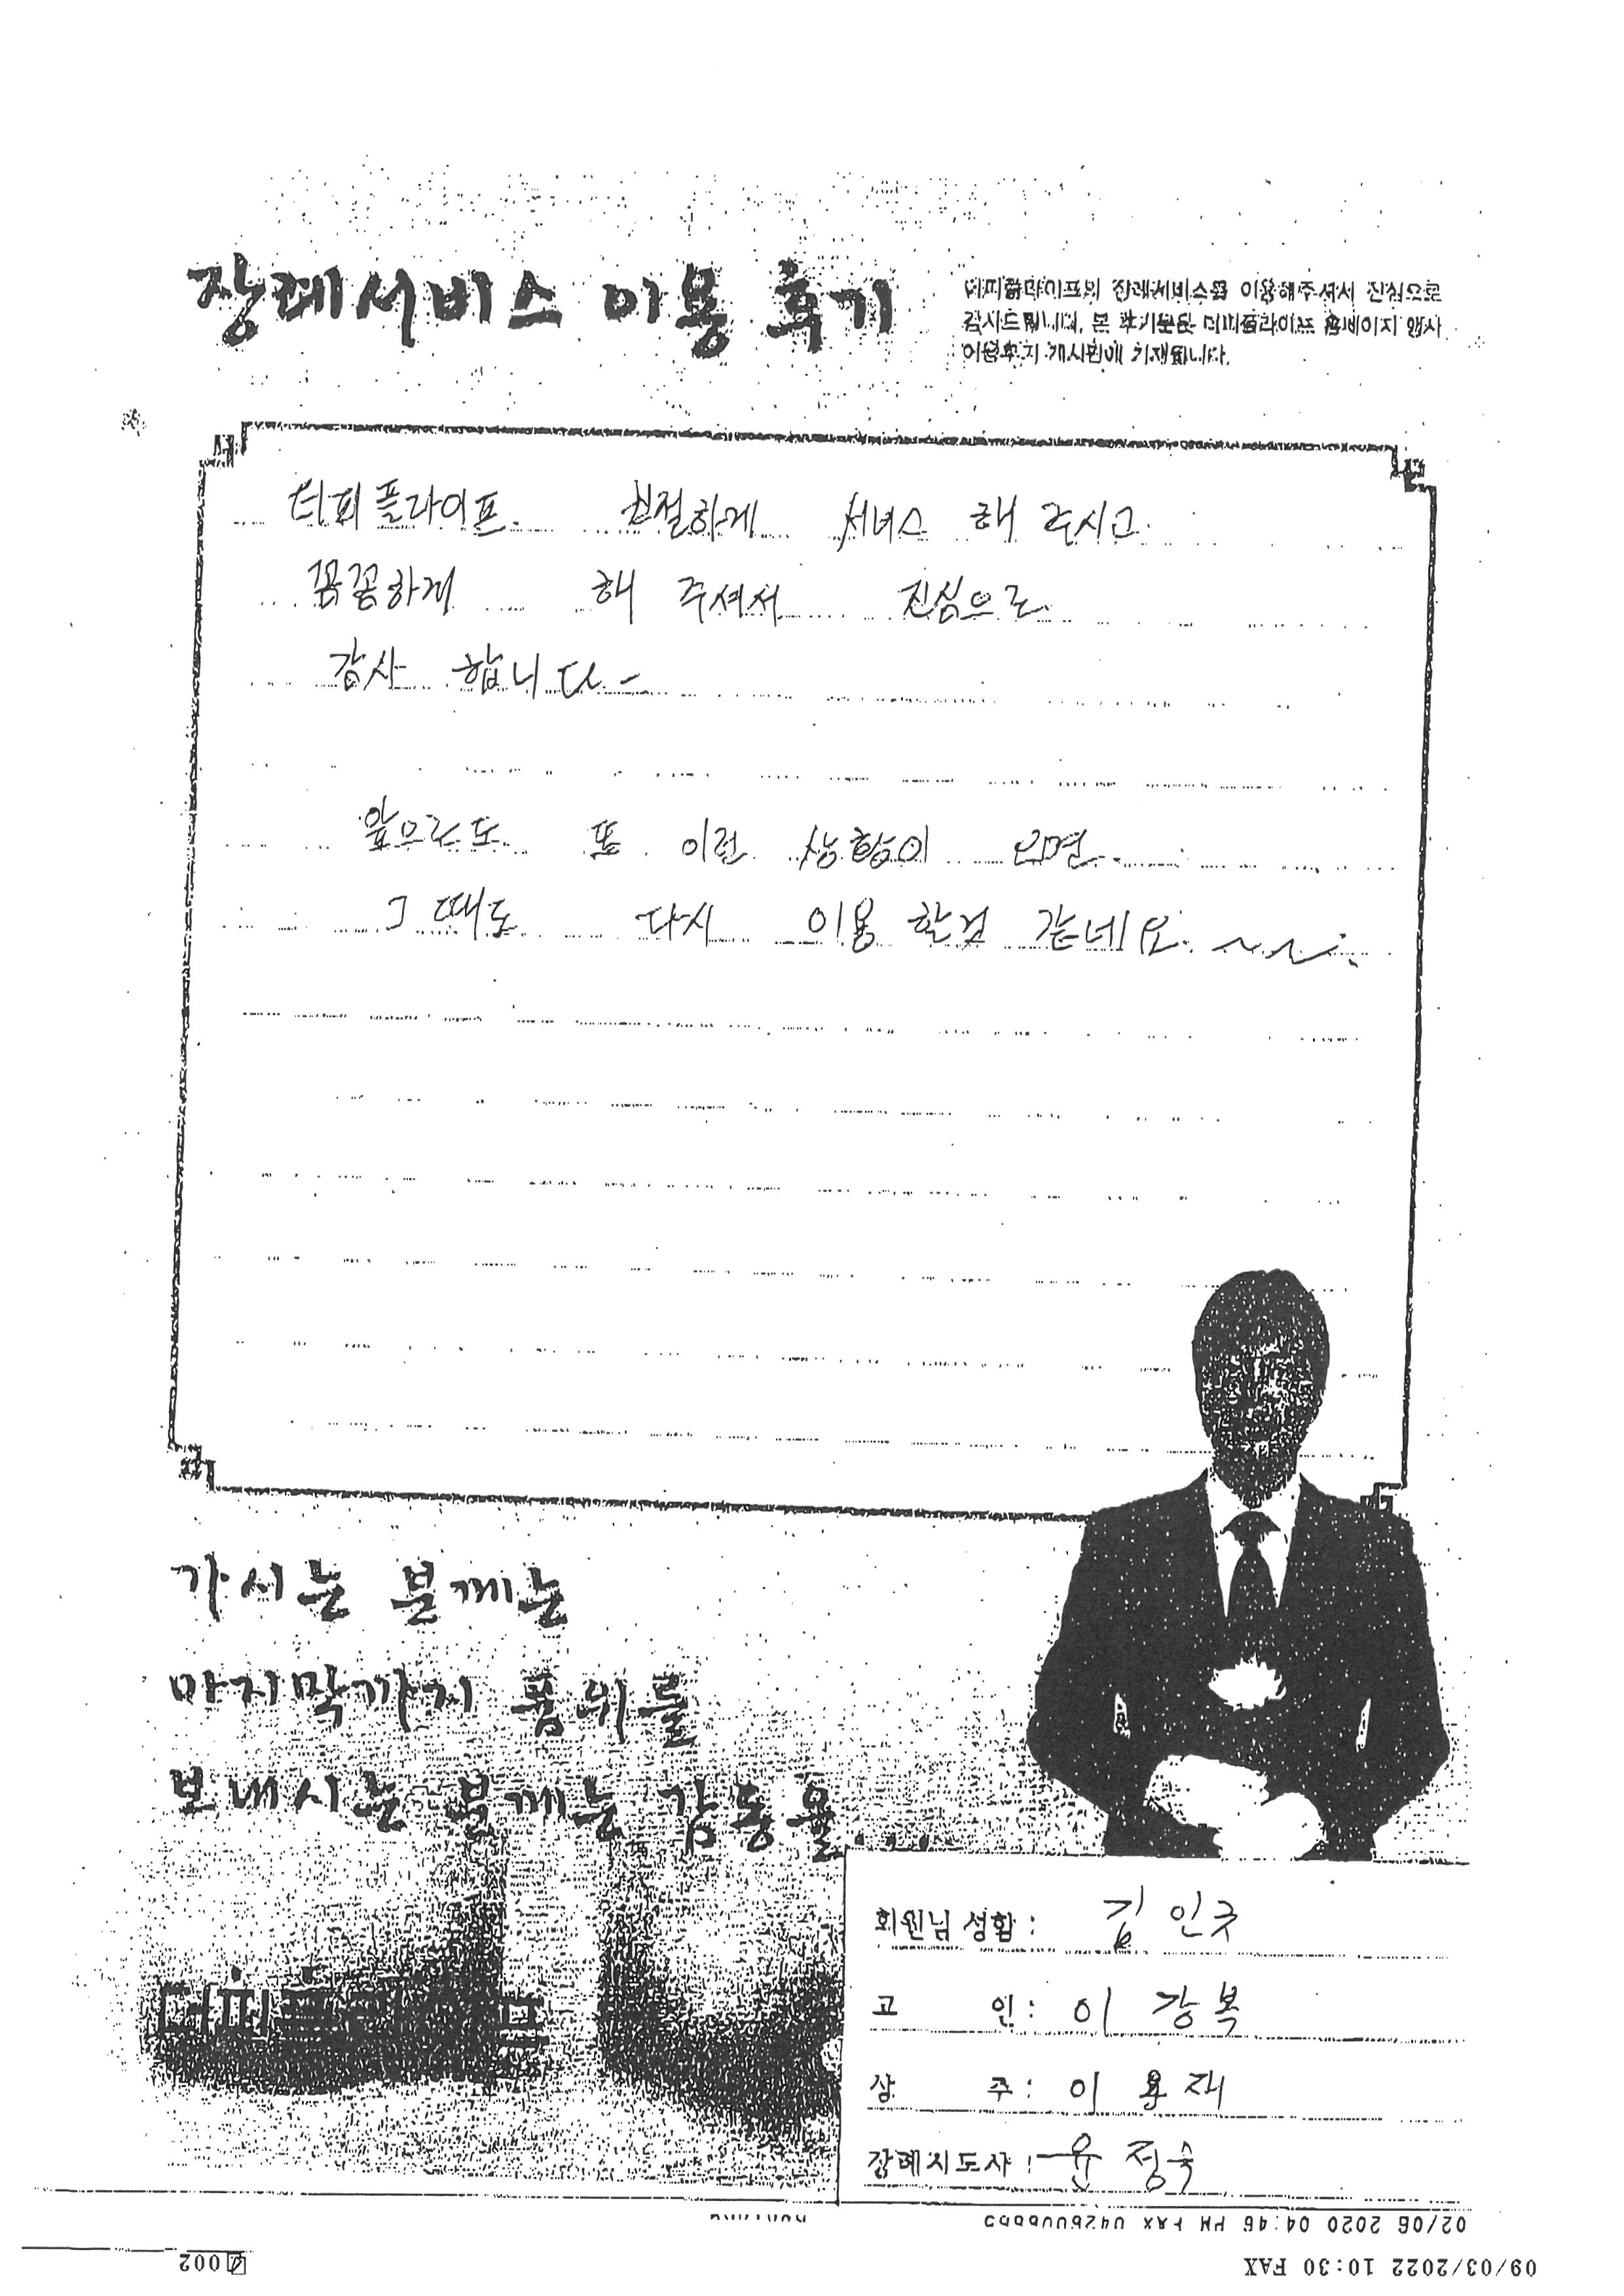 장례서비스 이용 후기
더피플라이프의 장례서비스를 이용해주셔서 진심으로
감사드립니다. 본 후기문은 더피플라이프 홈페이지 행사
이용후기 게시판에 기재됩니다.
더피플라이프 친절하게 서비스 해 주시고
꼼꼼하게 해 주셔서 진심으로
감사 합니다-
앞으로도 또 이런 상황이 오면
그때도 다시 이용 할것 같네요. ~~~
가시는 분께는
마지막까지 품위를
보내시는 분께는 감동을
더피플라이프
회원님 성함 : 김인규
고 인 : 이강복
상 주 : 이용재
장례지도사 : 윤정숙
02/06 2020 04:46 PM FAX
09/03/2022 10:30 FAX
002